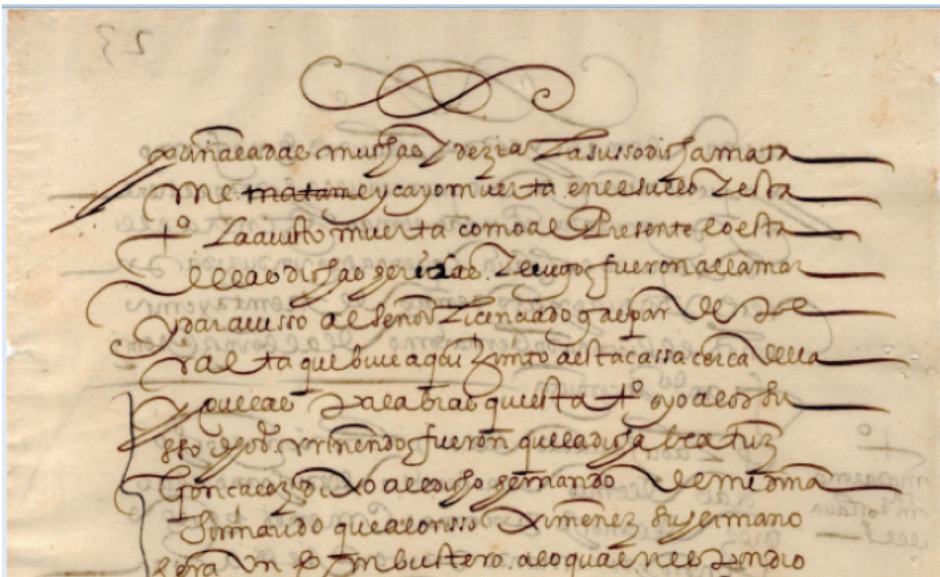 puñaladas muchas Y dezia La susodicha mata
me matame y cayo muerta en el suelo Y esta
tº La a visto muerta como al Presente lo esta
de las dichas heridas. Y luego fueron a llamar
y dar avisso al señor Licenciado gaspar de
ralta que bive aqui junto a esta cassa cerca della
Y que las Palabras que esta tº oyo a los su
sso dhos. rriñendo fueron que la dicha beatriz
Gonçalez dixo al dicho hernando de medina
hernando que alonsso Ximenez su hermano
hera Un Embustero a lo qual rrespondio